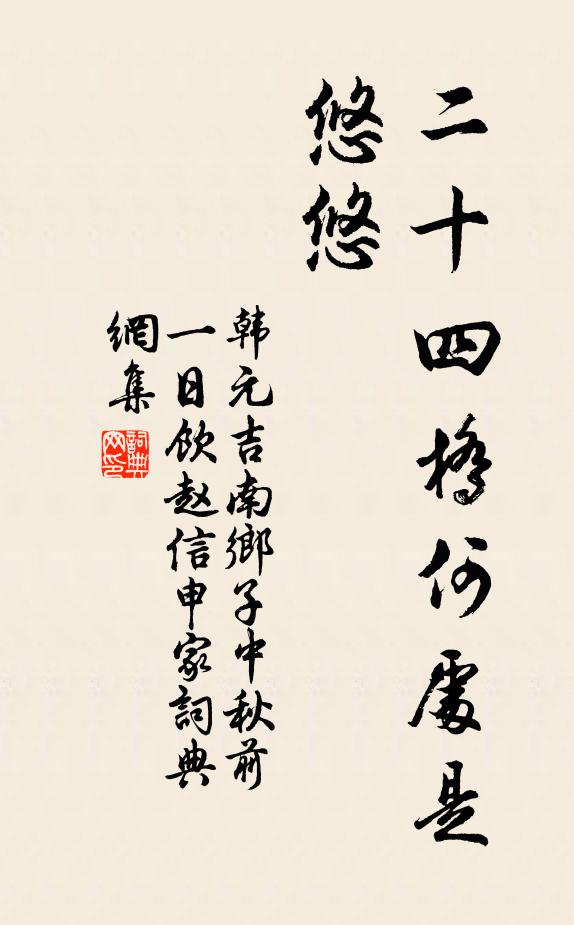 二十四橋何處是
悠悠
韩元吉南鄉子中秋前
一日飲赵信申家詞典
網集
詞典
网印